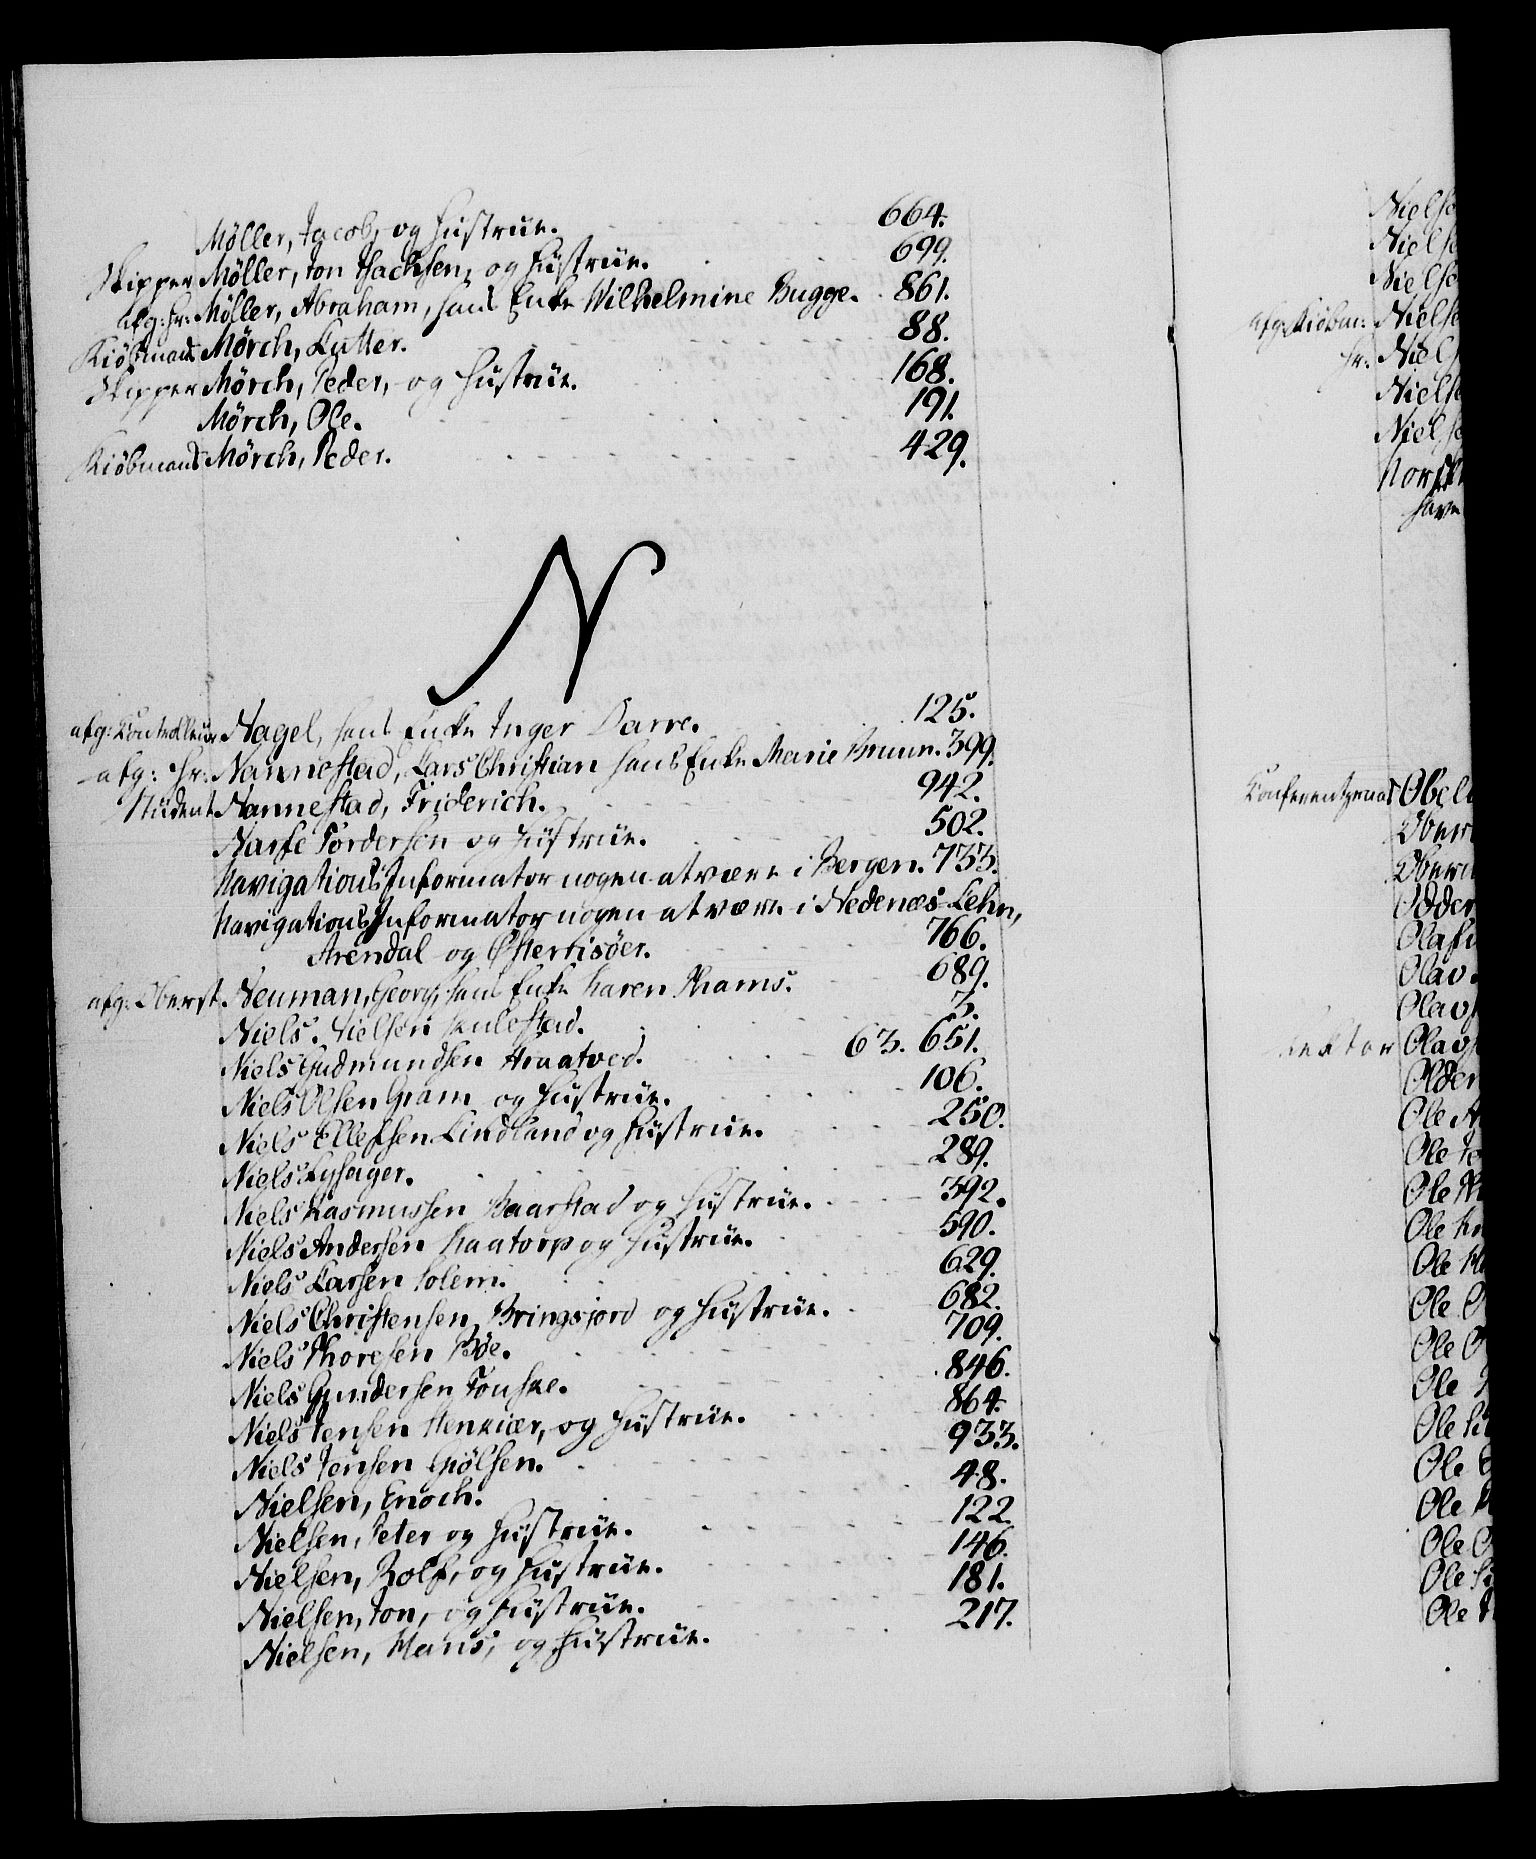 Møller, Jacob, og Hustrue. 664.
Skipper Møller, Jon Isachsen, og Hustrue. 699.
afg: Hr: Møller, Abraham, hans Enke Wilhelmine Bugge. 861.
Kiöbmand Mørch, Lutter. 88.
Skipper Mørch, Peder, og Hustrue. 168.
Mørch, Ole. 191.
Kiöbmand Mørch, Peder. 429.
N
afg: Controlleur Nagel, hans Enke Inger Darre. 125.
afg: Hr: Nannestad, Lars Christian hans Enke Marie Bruun. 399.
Student Nannestad, Friderich. 942.
Narfe Tordersen og Hustrue. 502.
Navigations Informator nogen at være i Bergen. 733.
Navigations Informator nogen at være i Nedenæs Lehn,
Arendal og Østerrisöer. 766.
afg: Oberst. Neuman, Georg, hans Enke Karen Thams. 689.
Niels Nielsen 3.
Niels Gudmundsen Traatved. 63. 651.
Niels Olsen Gram og Hustrue. 106.
Niels Ellefsen Lindland og Hustrue. 250.
Niels Lysager. 289.
Niels Rasmussen Baarstad og Hustrue. 392.
Niels Andersen Kaatorp og Hustrue. 590.
Niels Larsen Solem. 629.
Niels Christensen Bringsjord og Hustrue. 682.
Niels Thoresen Bøe. 709.
Niels Gundersen 846.
Niels Jensen Stenkiær, og Hustrue. 864.
Niels Jensen Giölsen. 933.
Nielsen, Enoch. 48.
Nielsen, Peter og Hustrue. 122.
Nielsen, Rolf, og Hustrue. 146.
Nielsen, Jon, og Hustrue. 181.
Nielsen, Hans, og Hustrue. 217.
Nielse
Nielse
Nielse
afg: Kiöbm: Nielse
Hr: Niels
Nielse
Nielse
Norsk
have
Conferentzraad Obel
Ober
Ober
Odder
Olaf
Olav
Olav
Rektor Olav
Older
Ole A
Ole
Ole
Ole
Ole
Ole
Ole
Ole
Ole
Ole
Ole
Ole
Ole
Ole